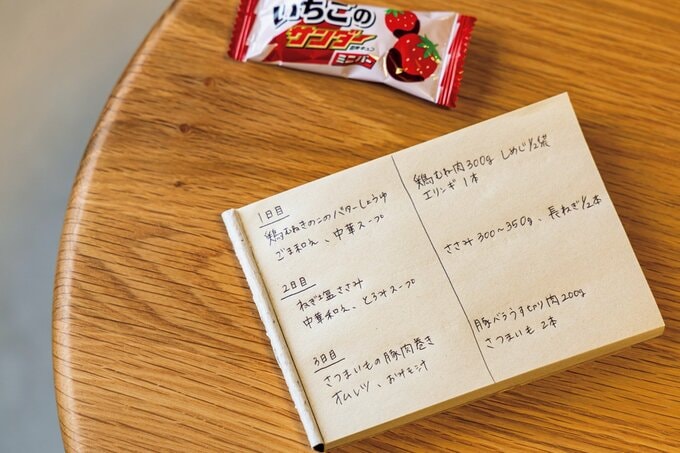 いちごの
サンダー
ミニバー
1日目
鶏むねきのこのバターしょうゆ
ごま和え、中華スープ
鶏むね肉300g しめじ1/2袋
エリンギ 1本
2日目
ねぎ塩ささみ
中華和え、とろみスープ
ささみ 300〜350g、長ねぎ1/2本
3日目
さつまいもの豚肉巻き
オムレツ、おみそ汁
豚バラうすぎり肉200g
さつまいも 2本